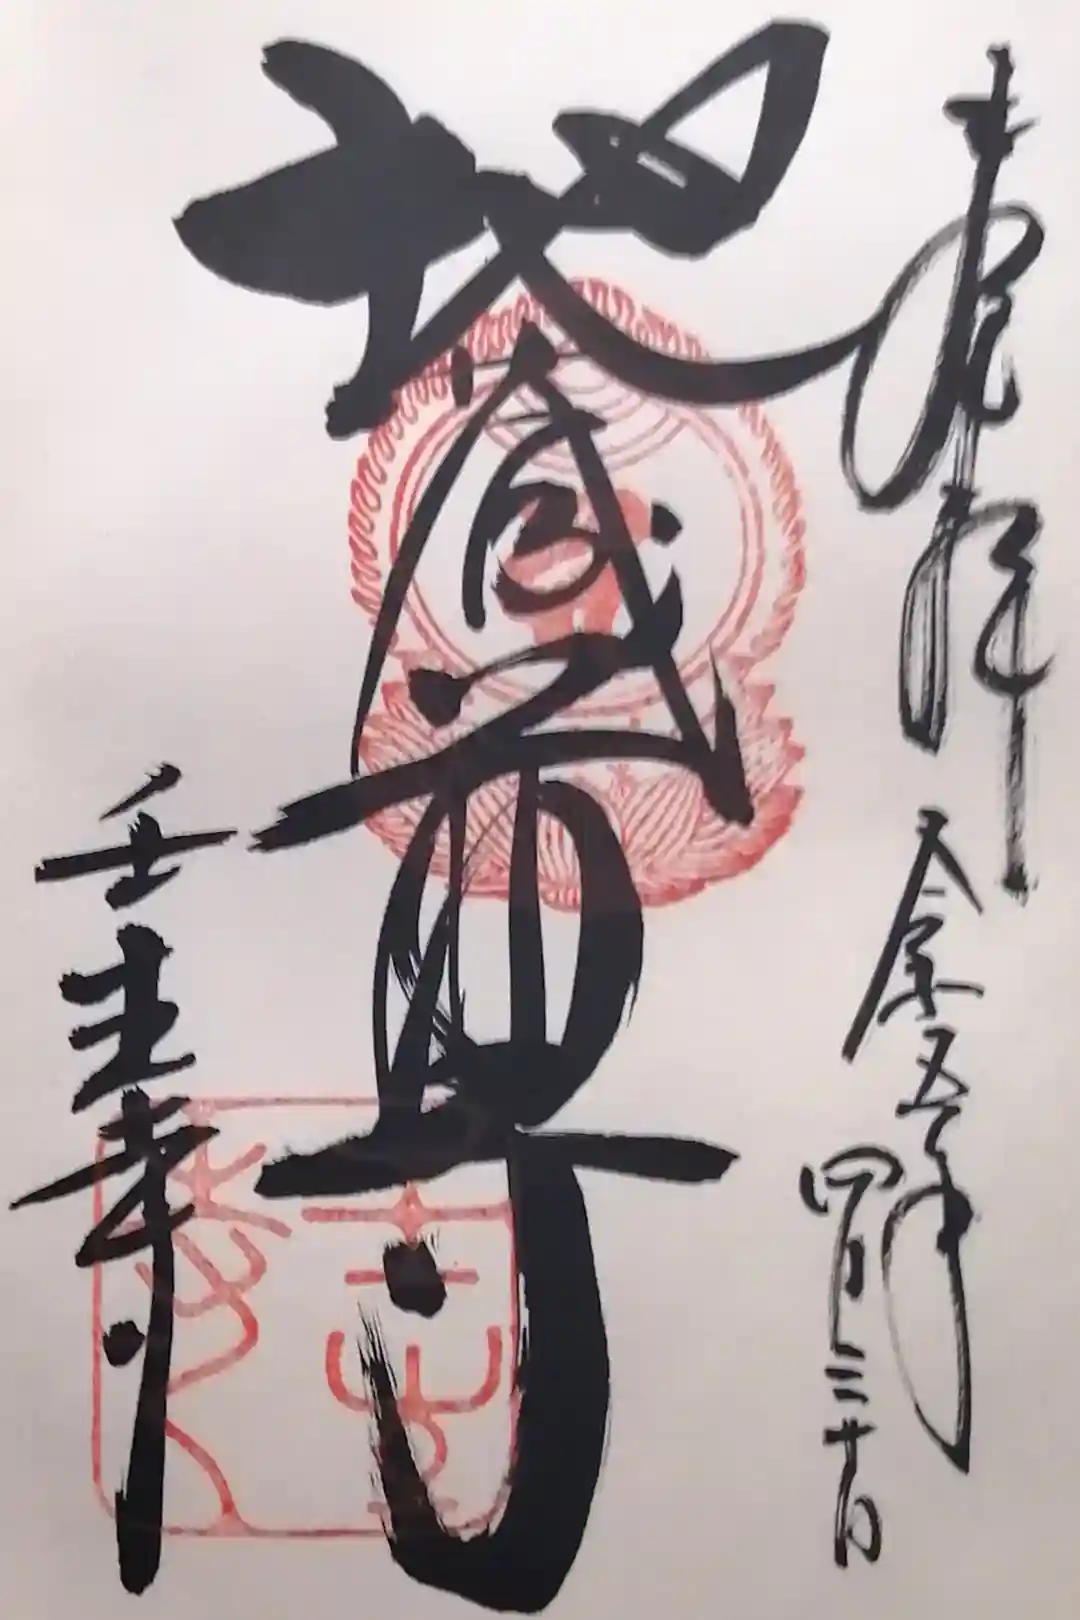 奉拝 令和五年
四月十日
地蔵尊
壬生寺